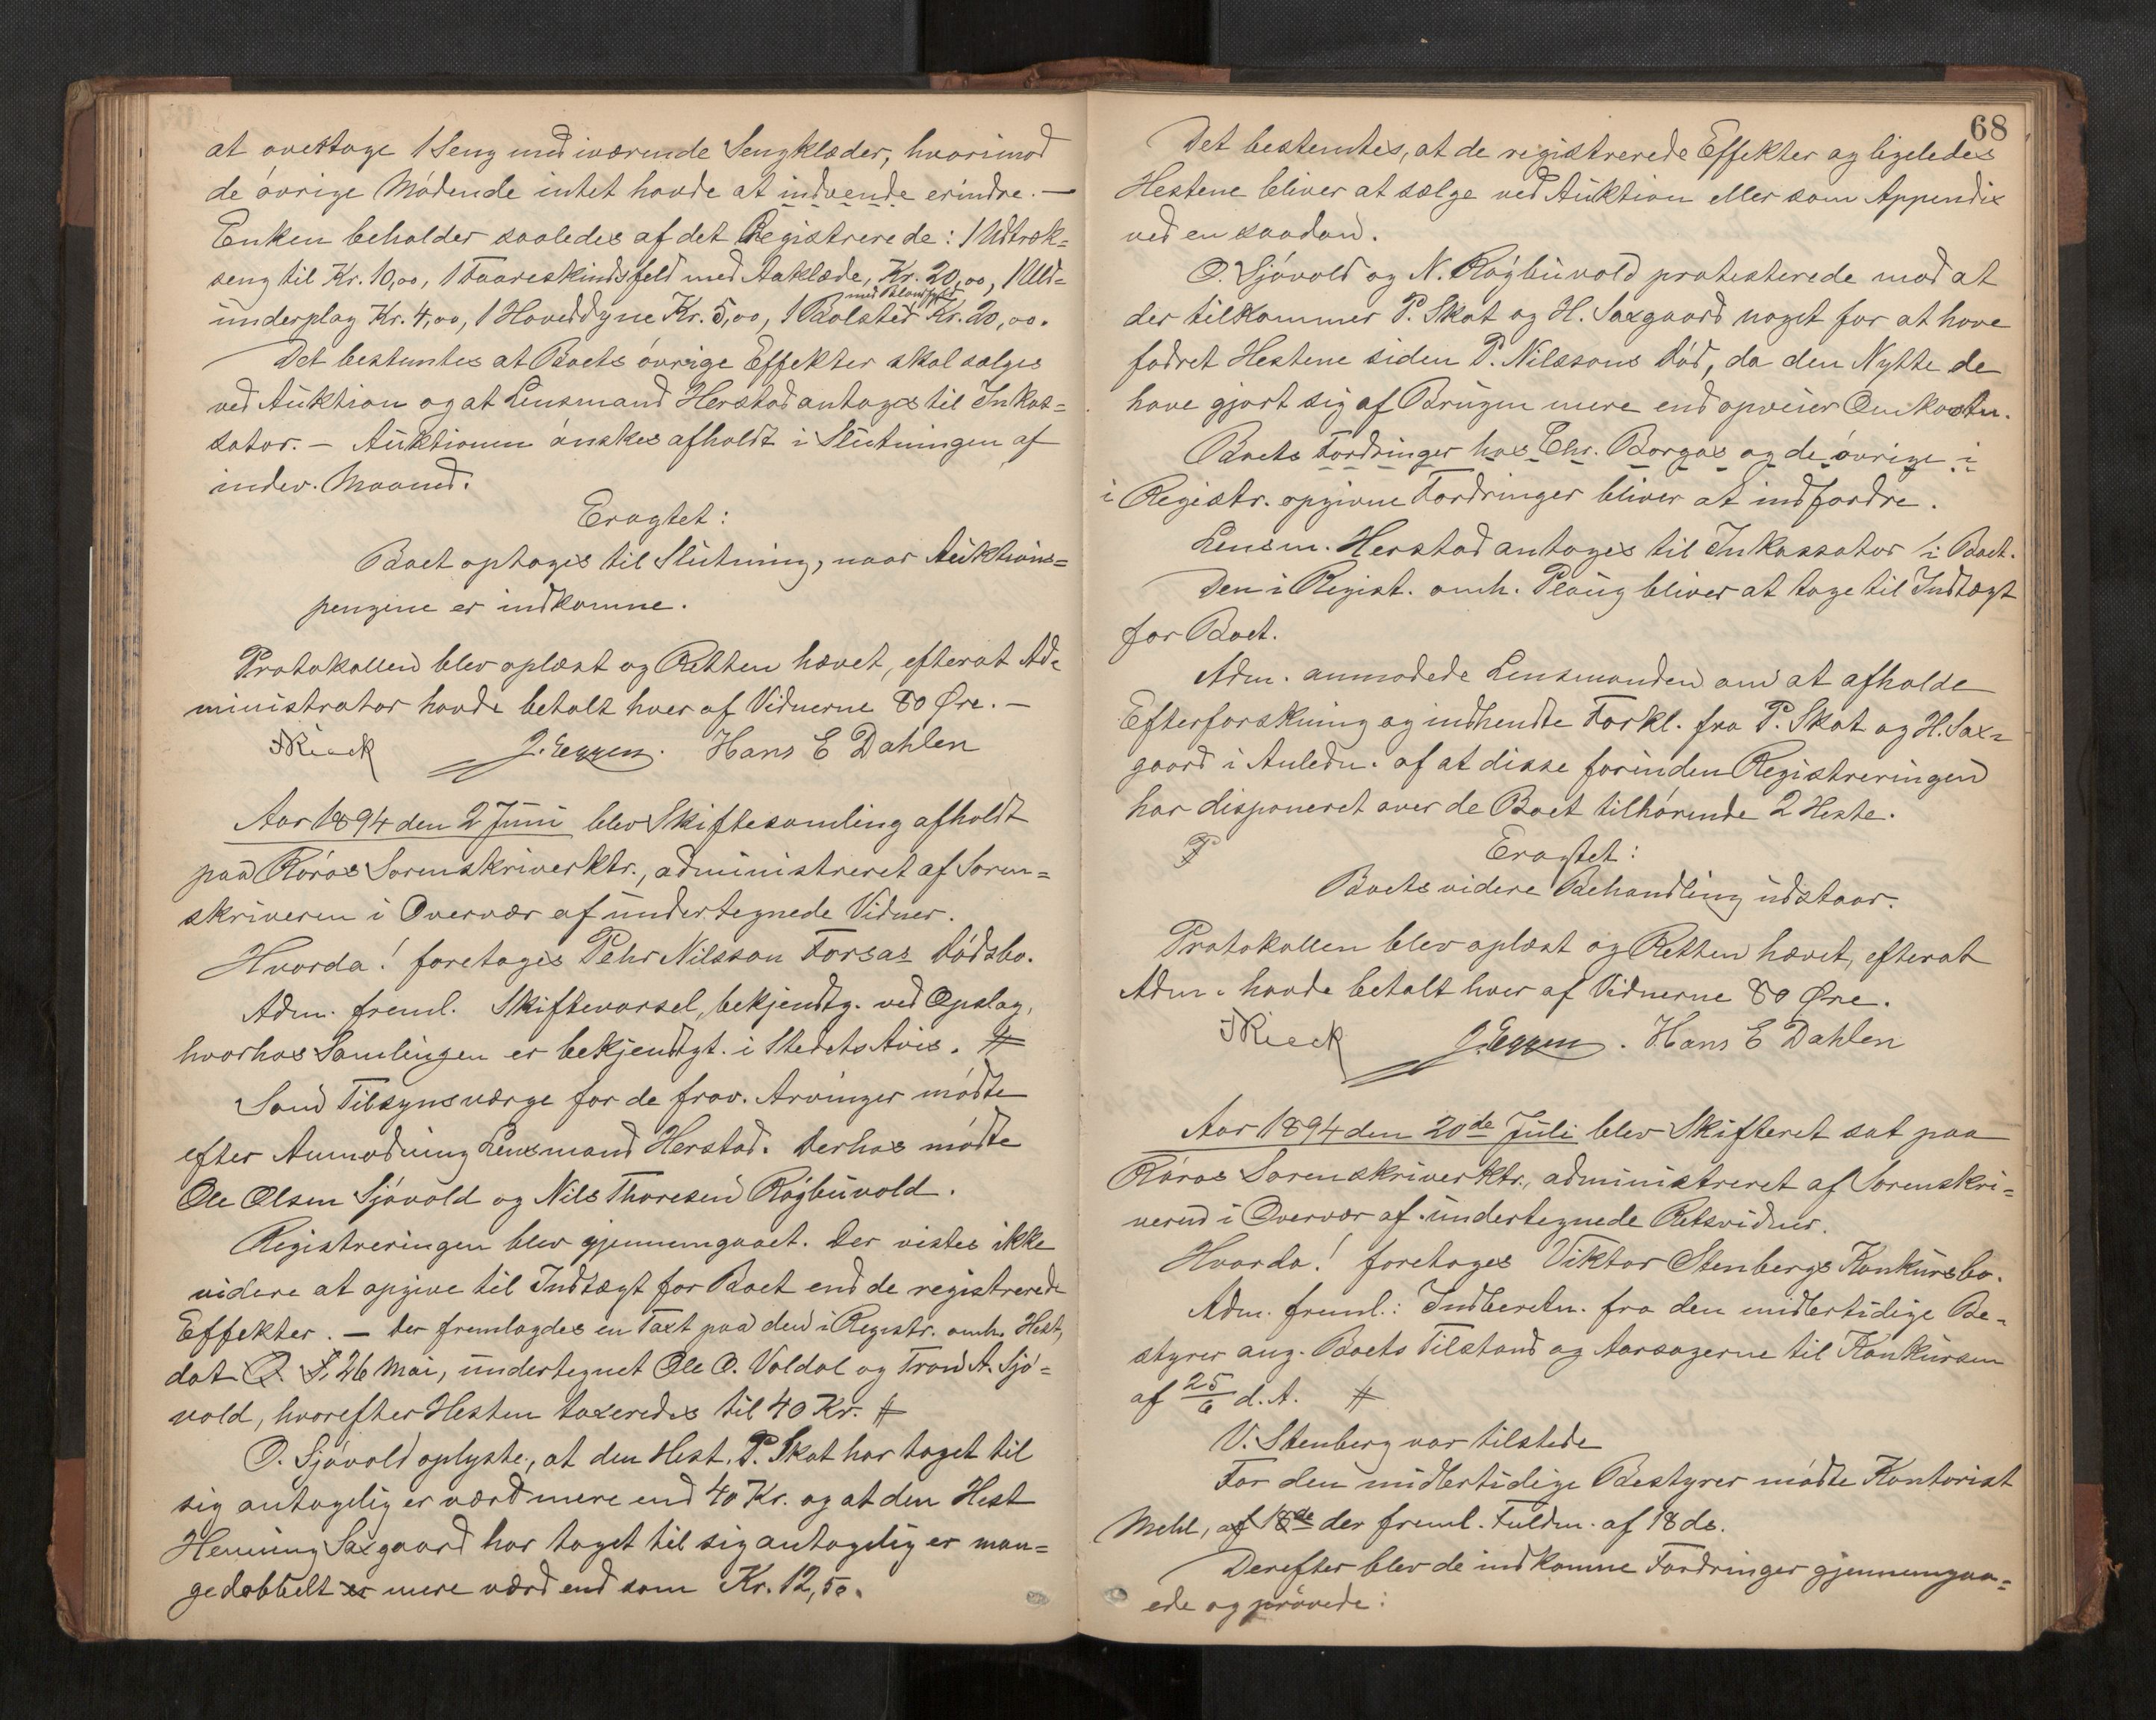 at overtage 1 Seng med iværende Sengklæder, hvorimod
de øvrige Mødende intet havde at indvende erindre. —
Enken beholder saaledes af det Registrerede: 1 Udtræk-
seng til Kr. 10,00, 1 Faareskindsfeld med Aaklæde, Kr. 20,00, 1 Uld-
med
underplag Kr. 4,00, 1 Hoveddyne Kr. 5,00, 1 Bolster Kr. 20,00.
Det bestemtes at Boets øvrige Effekter skal sælges
ved Auktion og at Lensmand Herstad antages til Inkas-
sator. — Auktionen ønskes afholdt i Slutningen af
indev. Maaned.
Eragtet:
Boet optages til Slutning, naar Auktions-
pengene er indkomne.
Protokollen blev oplæst og Retten hævet, efterat Ad-
ministrator havde betalt hver af Vidnerne 80 Øre. —
Rieck J. Eggen. Hans E Dahlen
Aar 1894 den 2 Juni blev Skiftesamling afholdt
paa Røros Sorenskriverktr., administreret af Soren-
skriveren i Overvær af undertegnede Vidner.
Hvorda! foretages Pehr Nilsson Forsas Dødsbo.
Adm. freml. Skiftevarsel, bekjendtg. ved Opslag,
hvorhos Samlingen er bekjendtgt. i Stedets Avis. #
Som Tilsynsværge for de frav. Arvinger mødte
efter Anmodning Lensmand Herstad. Derhos mødte
Ole Olsen Sjøvold og Nils Thoresen Røgbuvold.
Registreringen blev gjennemgaaet. Der vistes ikke
videre at opgive til Indtægt for Boet end de registrerede
Effekter. — Der fremlagdes en Taxt paa den i Registr. omh. Hest,
dat. 26 Mai, undertegnet Ole O. Valdal og Tron A. Sjø-
vold, hvorefter Hesten taxeredes til 40 Kr. #
O. Sjøvold oplyste, at den Hest, P. Skat har taget til
sig antagelig er værd mere end 40 Kr. og at den Hest
Henning Saxgaard har taget til sig antagelig er man-
gedobbelt er mere værd end som Kr. 12,50.
68
Det bestemtes, at de registrerede Effekter og ligeledes
Hestene bliver at sælge ved Auktion eller som Appendix
ved en saadan.
O. Sjøvold og N. Røgbuvold protesterede mod at
der tilkommer P. Skat og H. Saxgaard noget for at have
fodret Hestene siden P. Nilssons Død, da den Nytte de
have gjort sig af Brugen mere end opveier Omkostn.
Boets Fordringer hos Chr. Borgos og de øvrige i
i Registr. opgivne Fordringer bliver at indfordre.
Lensm. Herstad antages til Inkassator i Boet.
Den i Regist. omh. Ploug bliver at tage til Indtægt
for Boet.
Adm. anmodede Lensmanden om at afholde
Efterforskning og indhendte Forkl. fra P. Skat og H. Sax-
gaard i Anledn. af at disse forinden Registreringen
har disponeret over de Boet tilhørende 2 Heste.
Eragtet:
Boets videre Behandling udstaar.
Protokollen blev oplæst og Retten hævet, efterat
Adm. havde betalt hver af Vidnerne 80 Øre.
Rieck J. Eggen. Hans E Dahlen
Aar 1894 den 20de Juli blev Skifteret sat paa
Røros Sorenskriverktr., administreret af Sorenskri-
veren i Overvær af undertegnede Retsvidner.
Hvorda! foretages Viktor Stenbergs Konkursbo.
Adm. freml.: Indberetn. fra den midlertidige Be-
styrer ang. Boets Tilstand og Aarsagerne til Konkursen
af 25/6 d. A. #
V. Stenberg var tilstede
For den midlertidige Bestyrer mødte Kontorist
Mehl, af 18de der freml. Fuldm. af 18 ds.
Derefter blev de indkomne Fordringer gjennemgaa-
ede og prøvede: